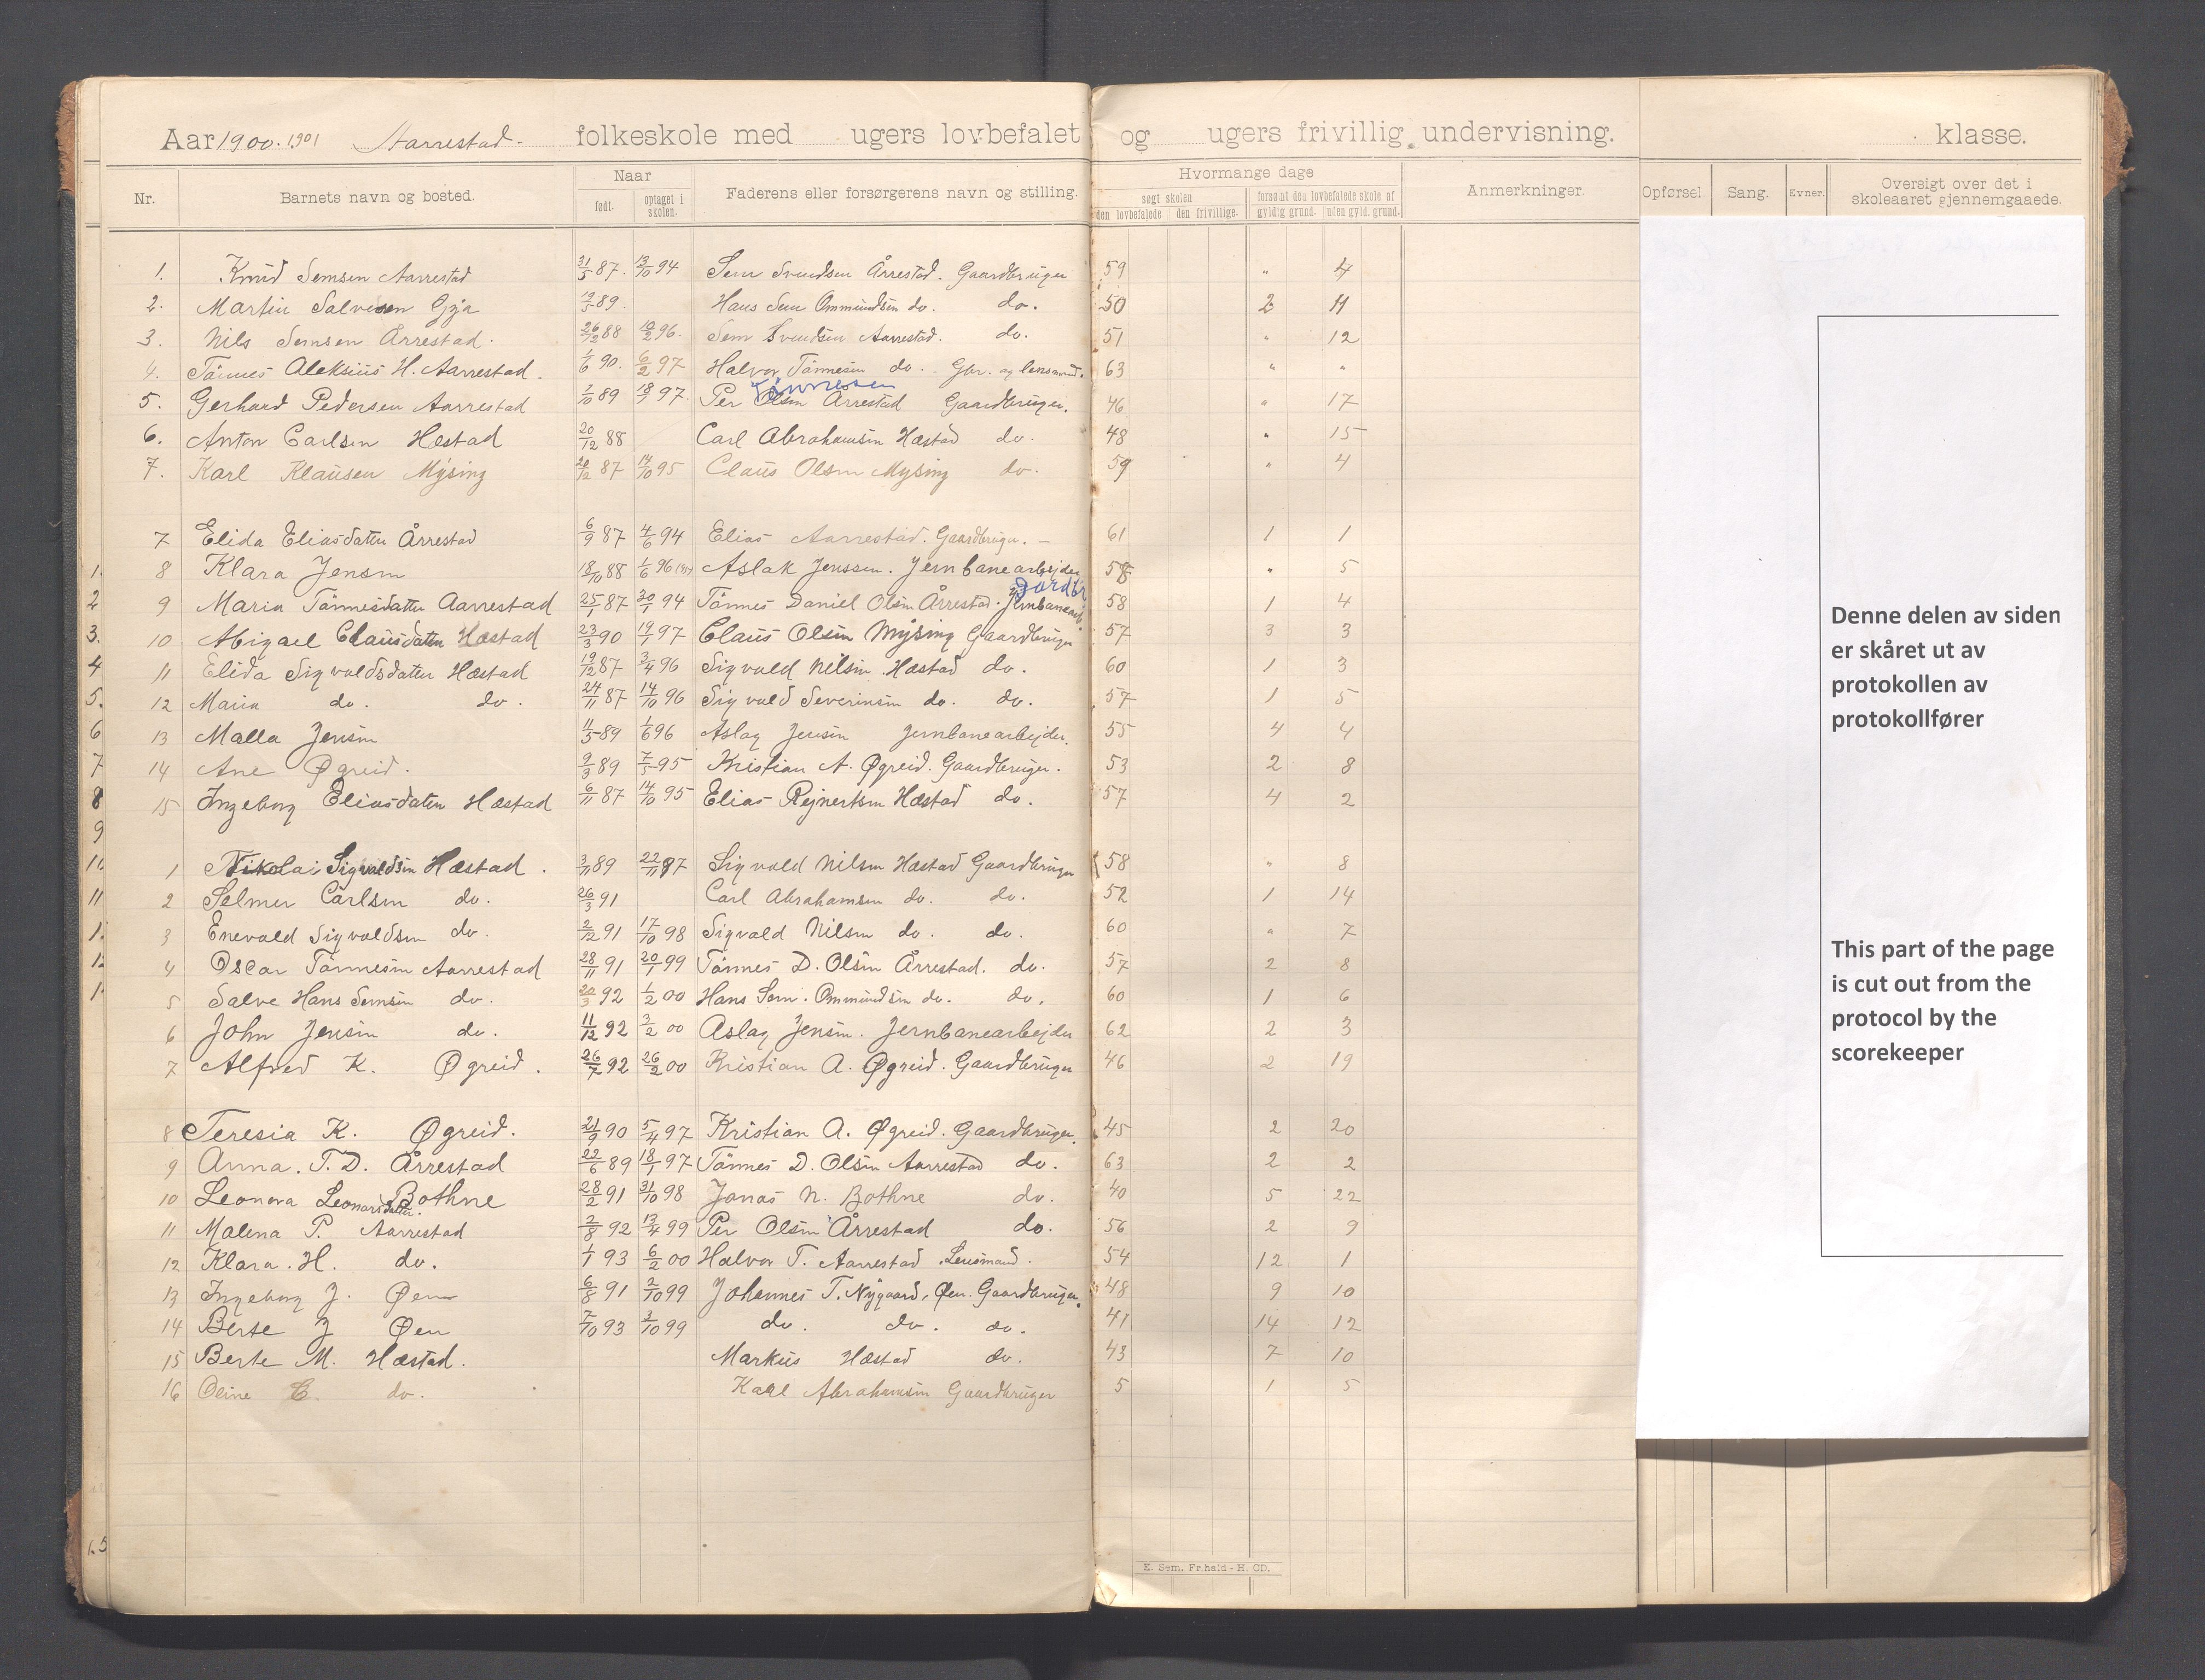 Aar 1900. 1901 Aarrestad. folkeskole med ugers lovbefalet og ugers frivillig undervisning. klasse.
Nr. Barnets navn og bosted. Naar født. optaget i skolen. Faderens eller forsørgerens navn og stilling. Hvormange dage søgt skolen den lovbefalede den frivillige. forsømt den lovbefalede skole af gyldig grund. uden gyld. grund. Anmerkninger. Opførsel Sang. Evner. Oversigt over det i skoleaaret gjennemgaaede.
1. Knud Semsen Aarrestad 31/5 87. 13/10 94 Sem Svendsen Årrestad. Gaardbruger 59 " 4
2. Martin Salvesen Gya 19/5 89. Hans Sem Ommundsen do. do. 50 2 11
3. Nils Semsen Årrestad. 26/12 88 10/2 96. Sem Svendsen Aarrestad. do. 51 " 12
4. Tønnes Aleksius H. Aarrestad. 1/6 90. 6/2 97 Halvor Tønnesen do. Gbr. og lensmand. 63 " "
Tønnesen
5. Gerhard Pedersen Aarrestad 2/10 89 18/1 97. Per Olsen Årrestad Gaardbruger. 46 " 17
6. Anton Carlsen Hestad 20/12 88 Carl Abrahamsen Hæstad do. 48 " 15
7. Karl Klausen Mysing 20/12 87 14/10 95 Claus Olsen Mysing do. 59 " 4
7 Elida Eliasdatter Årrestad 6/9 87 4/6 94 Elias Aarrestad. Gaardbruger. 61 1 1
1. 8 Klara Jensen 18/10 88 1/6 96 Aslak Jenssen. Jernbanearbejder 58 " 5
Gardbr
2 9 Maria Tønnesdatter Aarrestad 25/1 87 30/1 94 Tønnes Daniel Olsen Årrestad. Jernbanearb. 58 1 4
3. 10 Abigael Clausdatter Hæstad 23/3 90 19/1 97 Claus Olsen Mysing Gaardbruger 57 3 3
4 11 Elida Sigvaldsdatter Hæstad 19/12 87 3/4 96 Sigvald Nilsen Hæstad do. 60 1 3
5. 12 Maria do. do. 24/11 87 14/10 96 Sigvald Severinsen do. do. 57 1 5
6 13 Malla Jensen 11/5 89 1/6 96 Aslag Jensen Jernbanearbejder. 55 4 4
7 14 Ane Øgreid. 9/3 89 7/5 95 Kristian A. Øgreid. Gaardbruger. 53 2 8
8 15 Ingeborg Eliasdatter Hæstad 6/11 87 14/10 95 Elias Rejnertsen Hæstad do. 57 4 2
9
10 1 Nikolai Sigvaldsen Hæstad. 3/11 89 22/11 97 Sigvald Nilsen Hæstad Gaardbruger 58 " 8
11 2 Selmer Carlsen do. 26/3 91 Carl Abrahamsen do. do. 52 1 14
1. 3 Enevald Sigvaldsen do. 2/12 91 17/10 98 Sigvald Nilsen do. do. 60 " 7
1. 4 Oscar Tønnesen Aarrestad 28/11 91 20/1 99 Tønnes D. Olsen Årrestad. do. 57 2 8
1. 5 Salve Hans Semsen do. 20/3 92 1/2 00 Hans Sem. Ommundsen do. do. 60 1 6
6 John Jensen do. 11/12 92 3/2 00 Aslag Jensen. Jernbanearbejder 62 2 3
7 Alfred K. Øgreid. 26/7 92 26/2 00 Kristian A. Øgreid. Gaardbruger 46 2 19
8 Teresia K. Øgreid. 21/9 90 5/4 97 Kristian A. Øgreid. Gaardbruger. 45 2 20
9 Anna. T. D. Årrestad 22/6 89 18/1 97 Tønnes D. Olsen Aarrestad do. 63 2 2
10 Leonora Leonarsdatter. Bothne 28/2 91 31/10 98 Jonas N. Bothne do. 40 5 22
11 Malena P. Aarrestad 2/8 92 13/4 99 Per Olsen Årrestad do. 56 2 9
12 Klara. H. do. 1/1 93 6/2 00 Halvor T. Aarrestad. Lensmand. 54 12 1
13 Ingeborg J. Øen 6/8 91 2/10 99 Johannes T. Nygaard, Øen. Gaardbruger. 48 9 10
14 Berte J Øen 7/10 93 3/10 99 do. do. do. 41 14 12
15 Berte M. Hæstad. Markus Hæstad do. 43 7 10
16 Oline C. do. Karl Abrahamsen Gaardbruger 5 1 5
E. Sem, Fr.hald - H. CD.
Denne delen av siden
er skåret ut av
protokollen av
protokollfører
This part of the page
is cut out from the
protocol by the
scorekeeper